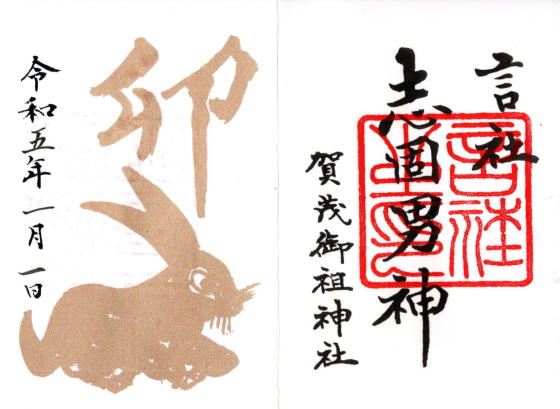 言社
志固男神
賀茂御祖神社
卯
令和五年一月一日